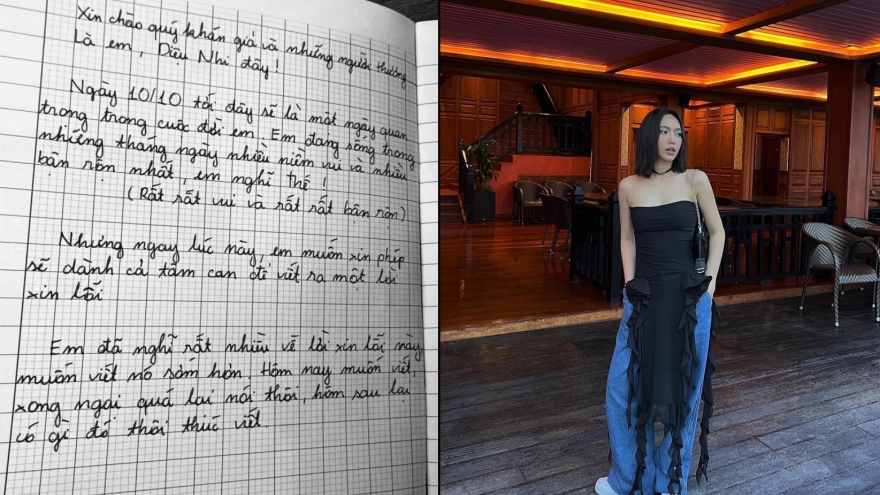 Xin chào quý khán giả và những người thương
Là em, Diệu Nhi đây!
Ngày 10/10 tới đây sẽ là một ngày quan
trọng trong cuộc đời em. Em đang sống trong
những tháng ngày nhiều niềm vui và nhiều
bận rộn nhất, em nghĩ thế!
(Rất rất vui và rất rất bận rộn)
Nhưng ngay lúc này, em muốn xin phép
sẽ dành cả tâm can để viết ra một lời
xin lỗi
Em đã nghĩ rất nhiều về lời xin lỗi này,
muốn viết nó sớm hơn. Hôm nay muốn viết,
xong ngại quá lại nói thôi, hôm sau lại
có gì đó thôi thúc viết.